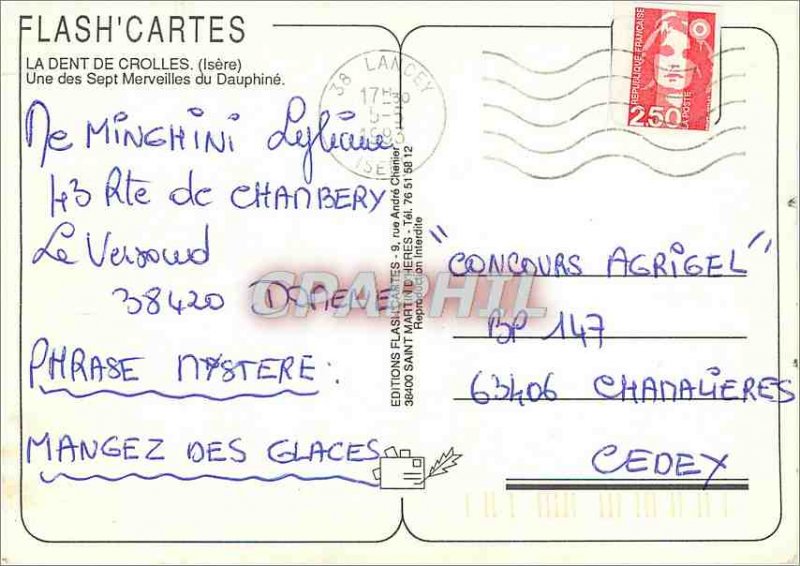 FLASH'CARTES
LA DENT DE CROLLES. (Isère)
Une des Sept Merveilles du Dauphiné.
38 LANCEY
17H30
5-
ISERE
RÉPUBLIQUE FRANÇAISE
2,50
LA POSTE
Me MINGHINI Lyliane
43 Rte de CHAMBERY
Le Versoud
38420 DOMENE
PHRASE MYSTERE :
MANGEZ DES GLACES
EDITIONS FLASH'CARTES - 9, rue André Chenier
38400 SAINT MARTIN D'HERES - Tél. 76 51 58 12
Reproduction Interdite
CPAPHIL
"CONCOURS AGRIGEL"
BP 147
63406 CHAMALIERES
CEDEX